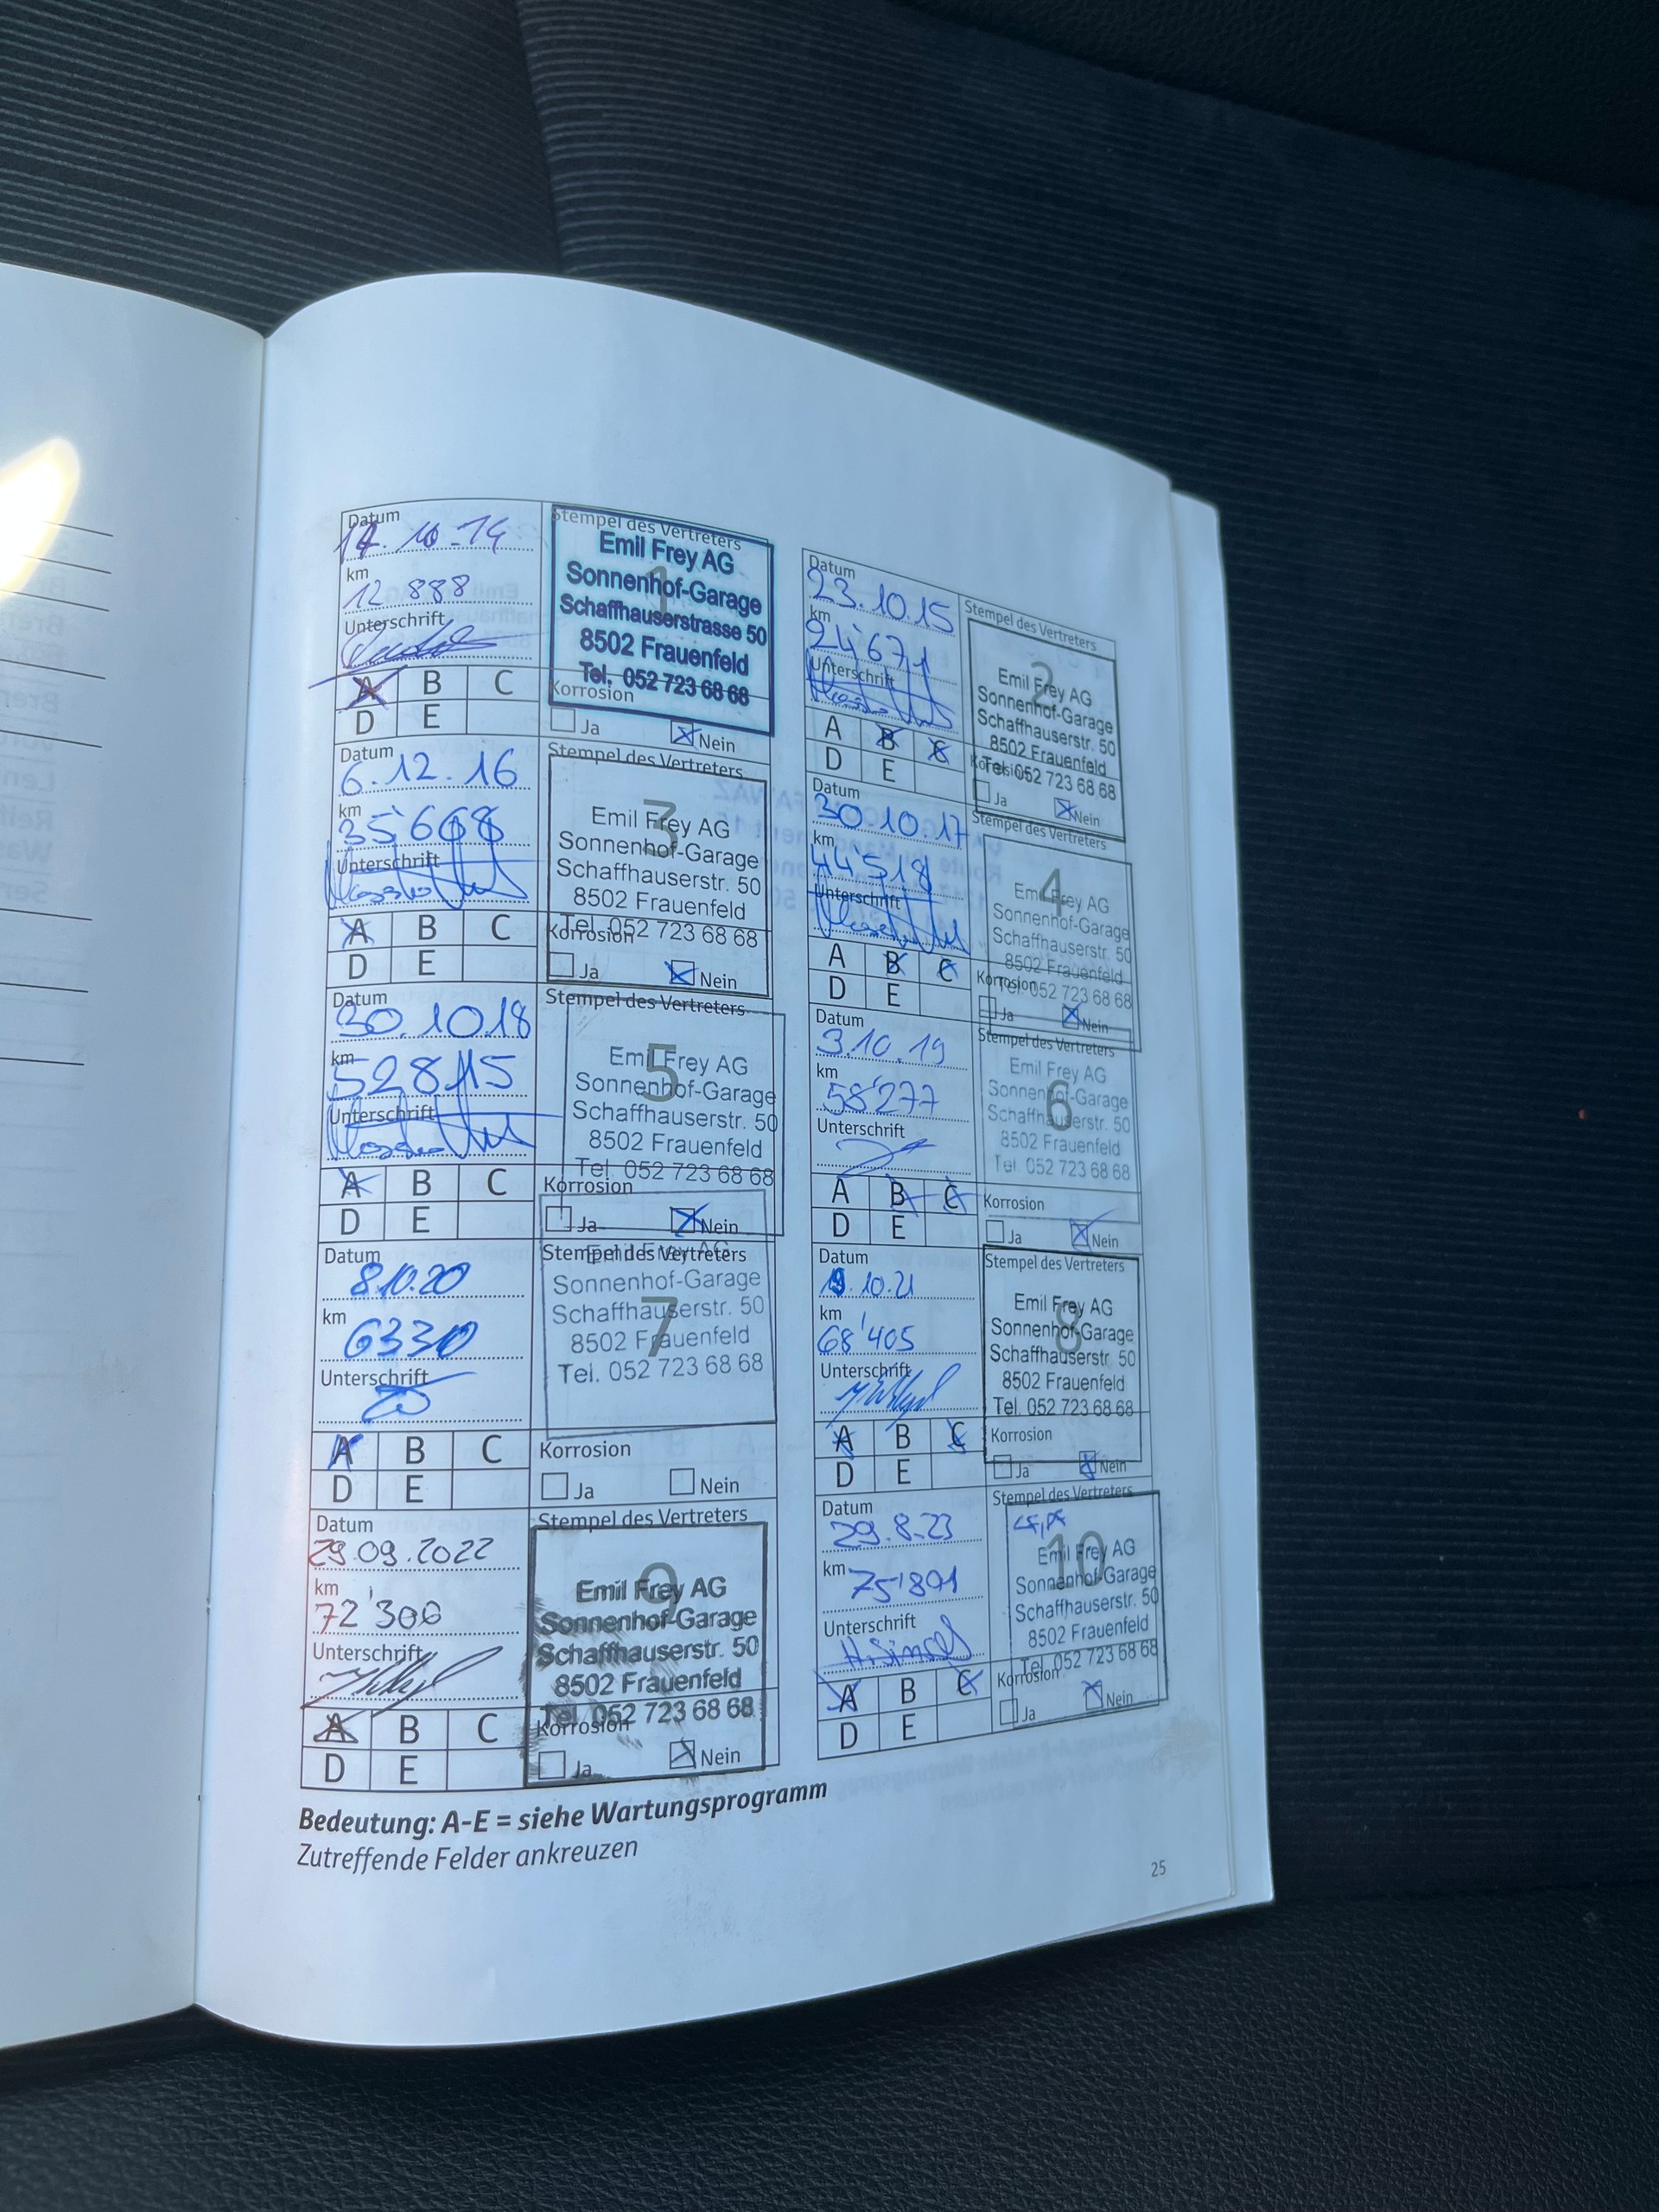 Datum
17.10.14
km
12 888
Unterschrift
A B C
D E
Stempel des Vertreters
1
Emil Frey AG
Sonnenhof-Garage
Schaffhauserstrasse 50
8502 Frauenfeld
Tel. 052 723 68 68
Korrosion
Ja Nein
Datum
23.10.15
km
24'671
Unterschrift
A B C
D E
Stempel des Vertreters
2
Emil Frey AG
Sonnenhof-Garage
Schaffhauserstr. 50
8502 Frauenfeld
Tel. 052 723 68 68
Korrosion
Ja Nein
Datum
6.12.16
km
35'608
Unterschrift
A B C
D E
Stempel des Vertreters
3
Emil Frey AG
Sonnenhof-Garage
Schaffhauserstr. 50
8502 Frauenfeld
Tel. 052 723 68 68
Korrosion
Ja Nein
Datum
30.10.17
km
44'518
Unterschrift
A B C
D E
Stempel des Vertreters
4
Emil Frey AG
Sonnenhof-Garage
Schaffhauserstr. 50
8502 Frauenfeld
Tel. 052 723 68 68
Korrosion
Ja Nein
Datum
30.10.18
km
52815
Unterschrift
A B C
D E
Stempel des Vertreters
5
Emil Frey AG
Sonnenhof-Garage
Schaffhauserstr. 50
8502 Frauenfeld
Tel. 052 723 68 68
Korrosion
Ja Nein
Datum
3.10.19
km
58'277
Unterschrift
A B C
D E
Stempel des Vertreters
6
Emil Frey AG
Sonnenhof-Garage
Schaffhauserstr. 50
8502 Frauenfeld
Tel. 052 723 68 68
Korrosion
Ja Nein
Datum
8.10.20
km
6330
Unterschrift
A B C
D E
Stempel des Vertreters
7
Emil Frey AG
Sonnenhof-Garage
Schaffhauserstr. 50
8502 Frauenfeld
Tel. 052 723 68 68
Korrosion
Ja Nein
Datum
19.10.21
km
68'405
Unterschrift
A B C
D E
Stempel des Vertreters
8
Emil Frey AG
Sonnenhof-Garage
Schaffhauserstr. 50
8502 Frauenfeld
Tel. 052 723 68 68
Korrosion
Ja Nein
Datum
29.09.2022
km
72'300
Unterschrift
A B C
D E
Stempel des Vertreters
9
Emil Frey AG
Sonnenhof-Garage
Schaffhauserstr. 50
8502 Frauenfeld
Tel. 052 723 68 68
Korrosion
Ja Nein
Datum
29.8.23
km
75'891
Unterschrift
A B C
D E
Stempel des Vertreters
10
Emil Frey AG
Sonnenhof-Garage
Schaffhauserstr. 50
8502 Frauenfeld
Tel. 052 723 68 68
Korrosion
Ja Nein
Bedeutung: A-E = siehe Wartungsprogramm
Zutreffende Felder ankreuzen
25